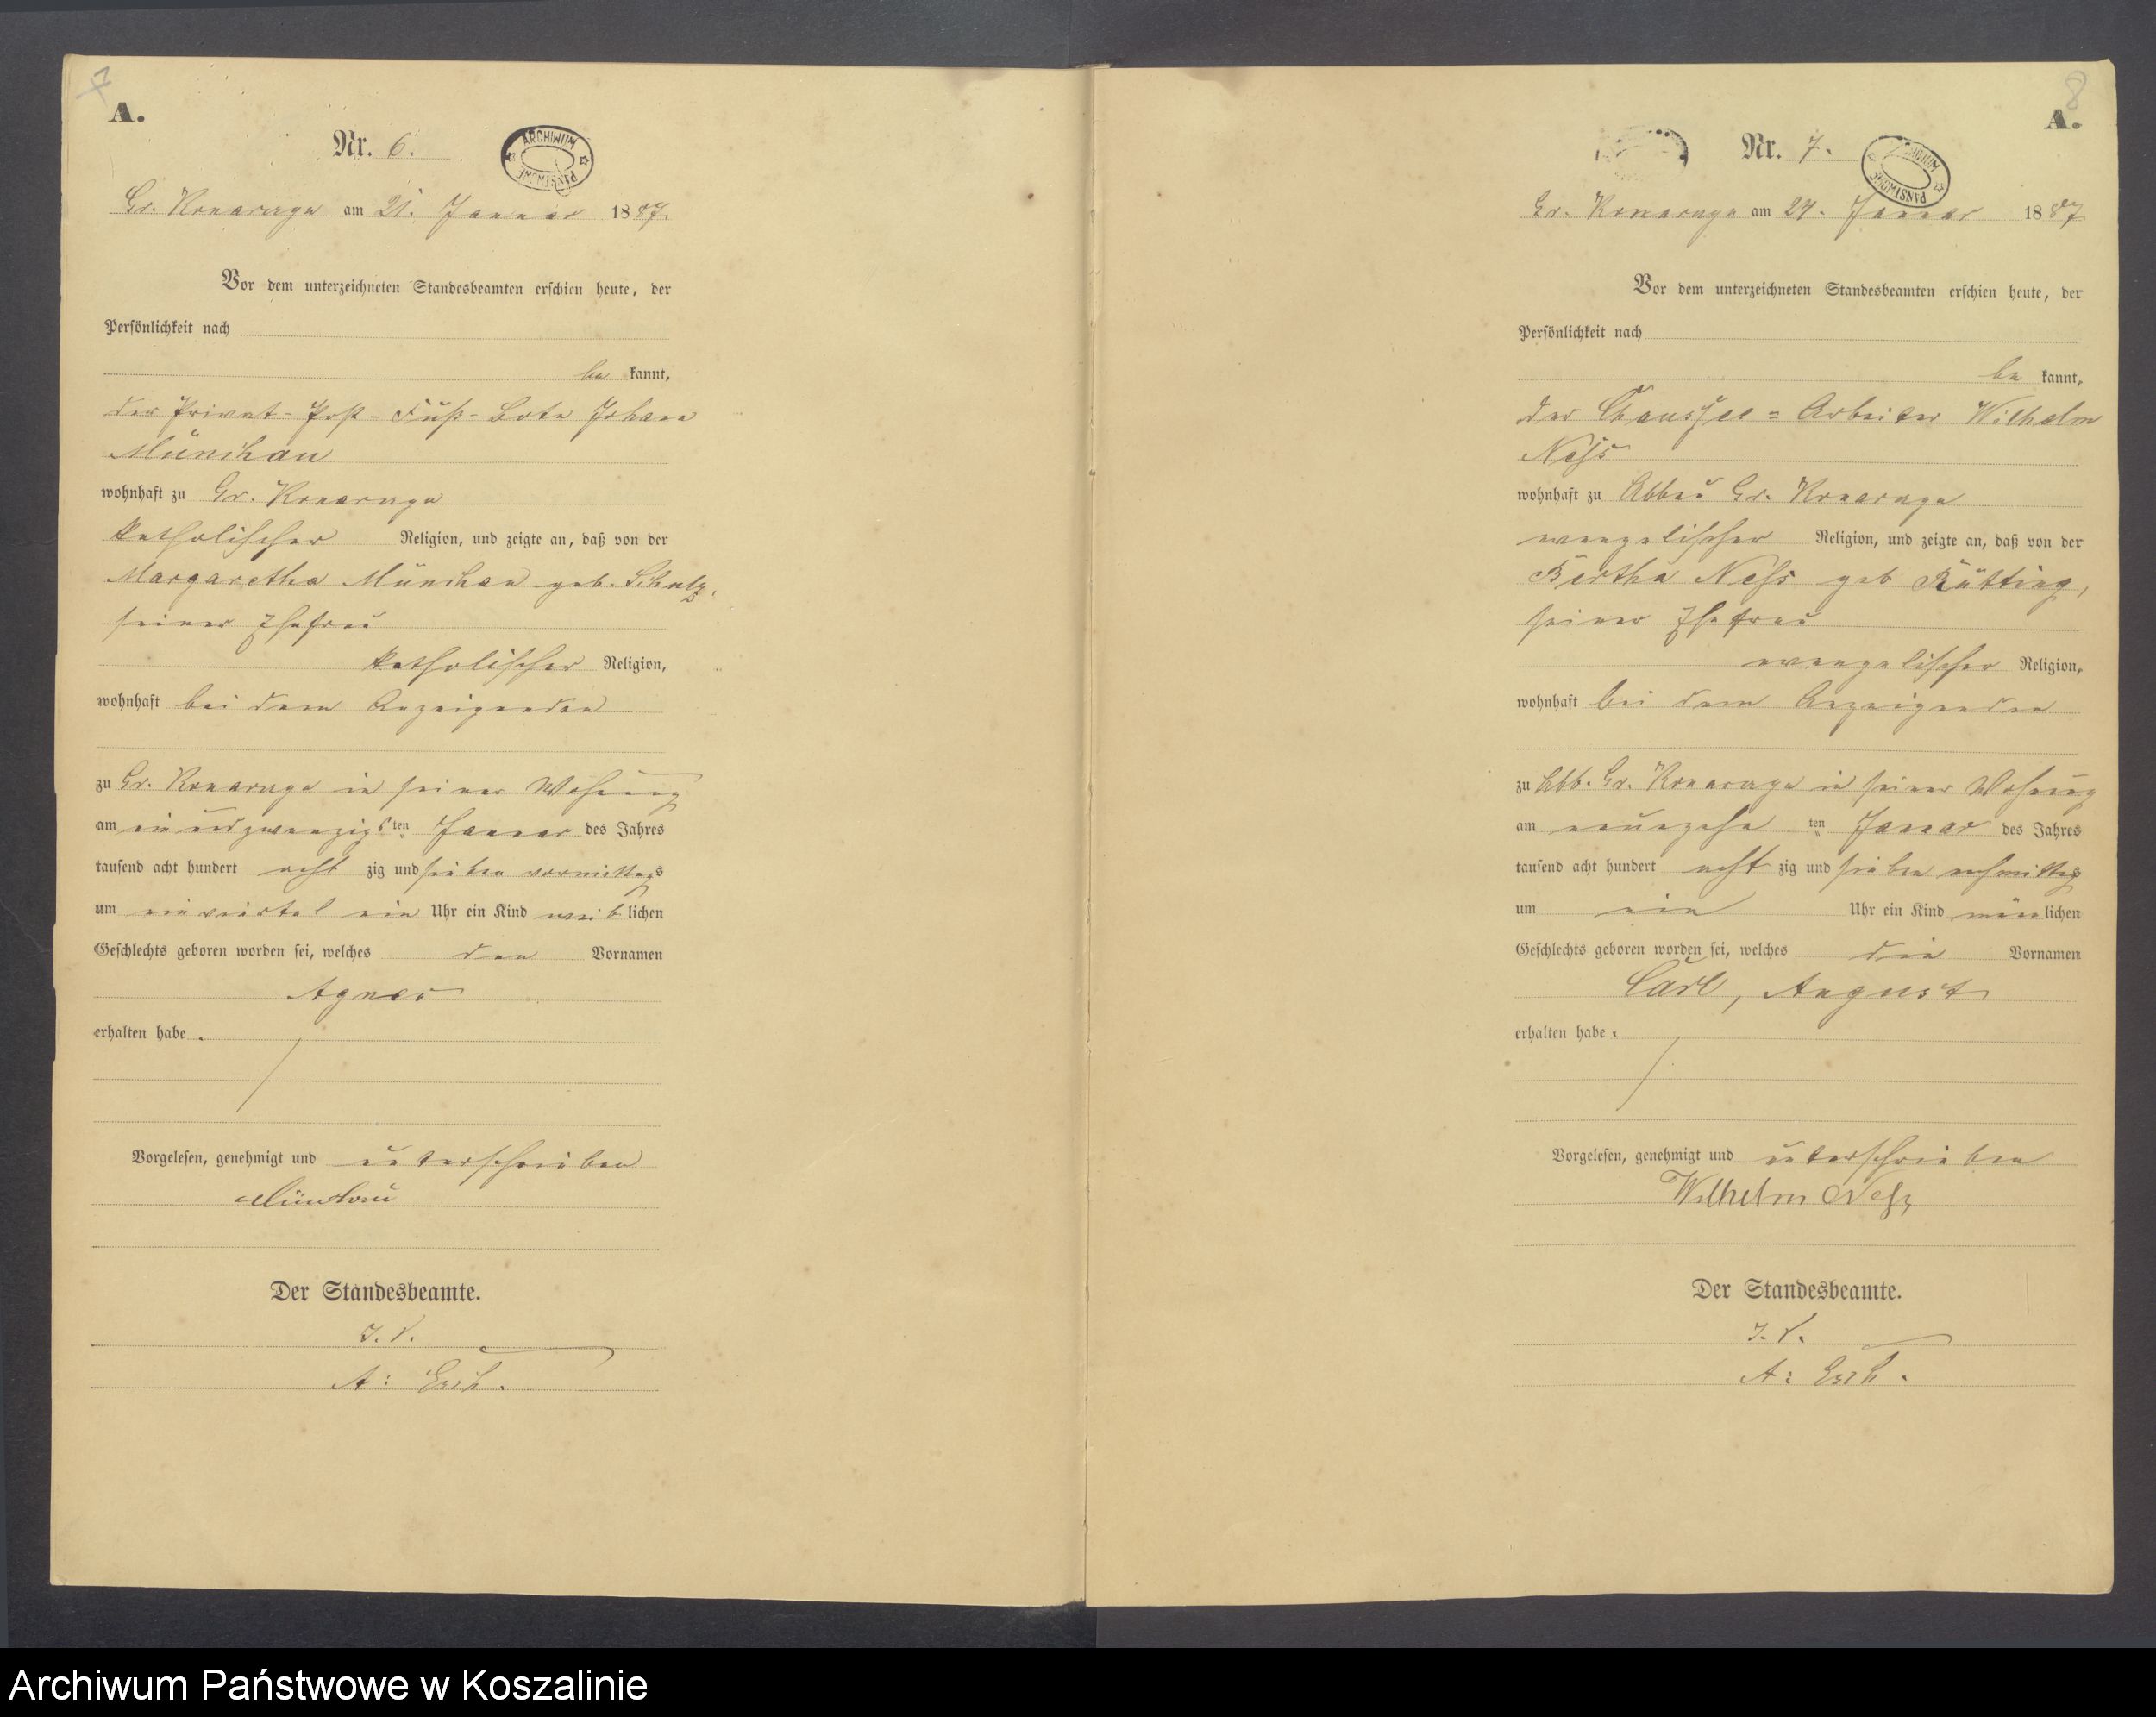 7
A.
Nr. 6.
ARCHIWUM PAŃSTWOWE
Gr. Konarzyn am 21. Januar 1887.
Vor dem unterzeichneten Standesbeamten erschien heute, der
Persönlichkeit nach
be kannt,
der Privat-Post-Fuß-Bote Johann
Münchau
wohnhaft zu Gr. Konarzyn
katholischer Religion, und zeigte an, daß von der
Margaretha Münchau geb. Schulz,
seiner Ehefrau
katholischer Religion,
wohnhaft bei dem Anzeigenden
zu Gr. Konarzyn in seiner Wohnung
am einundzwanzigsten Januar des Jahres
tausend acht hundert acht zig und sieben vormittags
um ein viertel ein Uhr ein Kind weib lichen
Geschlechts geboren worden sei, welches den Vornamen
Agnes
erhalten habe.
Vorgelesen, genehmigt und unterschrieben
Münchau
Der Standesbeamte.
I. V.
A:
8
A.
Nr. 7.
ARCHIWUM PAŃSTWOWE
Gr. Konarzyn am 24. Januar 1887
Vor dem unterzeichneten Standesbeamten erschien heute, der
Persönlichkeit nach
be kannt,
der Chaussee=Arbeiter Wilhelm
Neß
wohnhaft zu Abbau Gr. Konarzyn
evangelischer Religion, und zeigte an, daß von der
Bertha Neß geb Rütting,
seiner Ehefrau
evangelischer Religion,
wohnhaft bei dem Anzeigenden
zu Abb. Gr. Konarzyn in seiner Wohnung
am neunzehn ten Januar des Jahres
tausend acht hundert acht zig und sieben nachmittags
um ein Uhr ein Kind männ lichen
Geschlechts geboren worden sei, welches die Vornamen
Carl, August
erhalten habe.
Vorgelesen, genehmigt und unterschrieben
Wilhelm Neß
Der Standesbeamte.
I. V.
A:
Archiwum Państwowe w Koszalinie